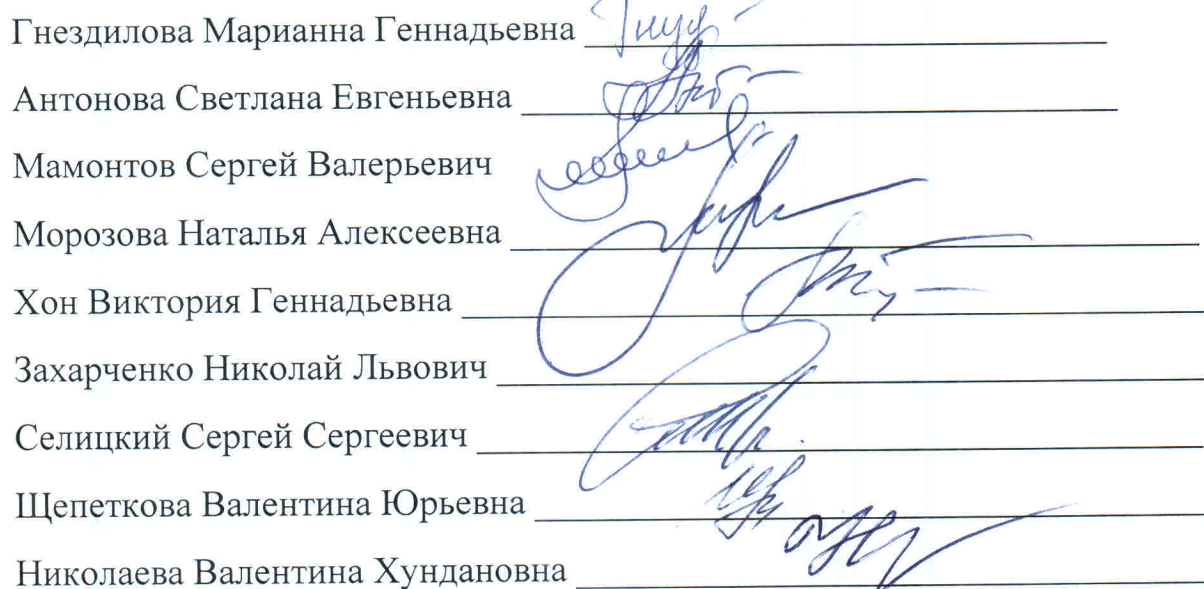 Гнездилова Марианна Геннадьевна
Антонова Светлана Евгеньевна
Мамонтов Сергей Валерьевич
Морозова Наталья Алексеевна
Хон Виктория Геннадьевна
Захарченко Николай Львович
Селицкий Сергей Сергеевич
Щепеткова Валентина Юрьевна
Николаева Валентина Хундановна